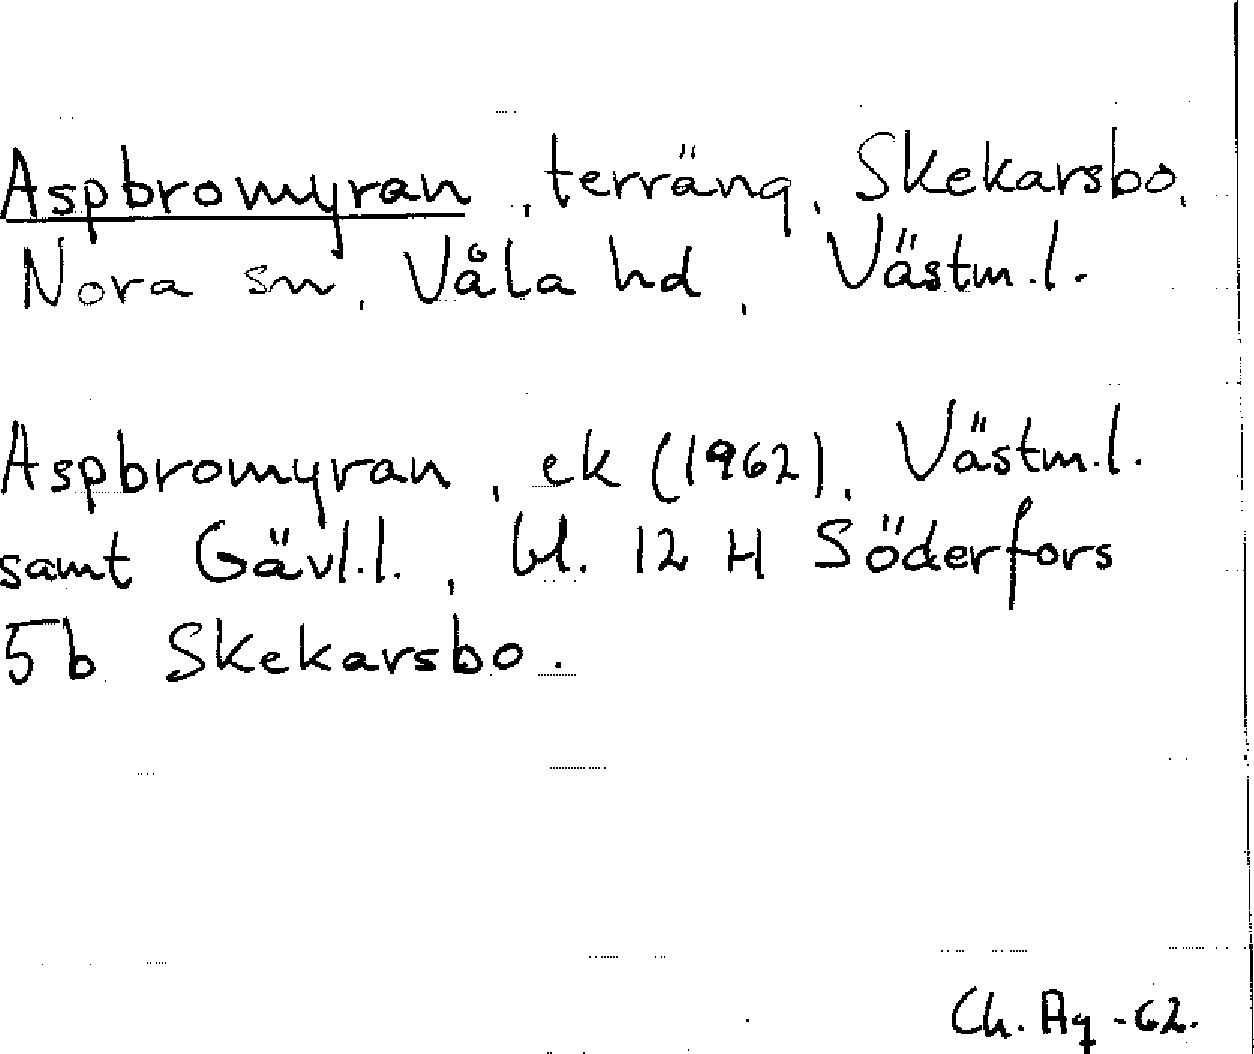 Aspbromyran, terräng, Skekarsbo,
Nora sn, Våla hd, Västm.l.
Aspbromyran, ek (1962), Västm.l.
samt Gävl.l., bl. 12 H Söderfors
5b Skekarsbo.
Ch. Ag -62.